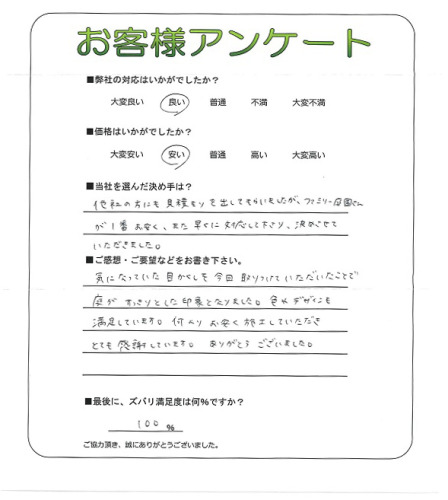 お客様アンケート
■弊社の対応はいかがでしたか？
大変良い 良い 普通 不満 大変不満
■価格はいかがでしたか？
大変安い 安い 普通 高い 大変高い
■当社を選んだ決め手は？
他社の方にも見積もりを出してもらいましたが、ファミリー庭園さん
が1番お安く、また早々に対応して下さり、決めさせて
いただきました。
■ご感想・ご要望などをお書き下さい。
気になっていた目かくしも今回取りつけていただいたことで
庭がすっきりとした印象となりました。色やデザインも
満足しています。何よりお安く施工していただき
とても感謝しています。ありがとうございました。
■最後に、ズバリ満足度は何％ですか？
100 %
ご協力頂き、誠にありがとうございました。